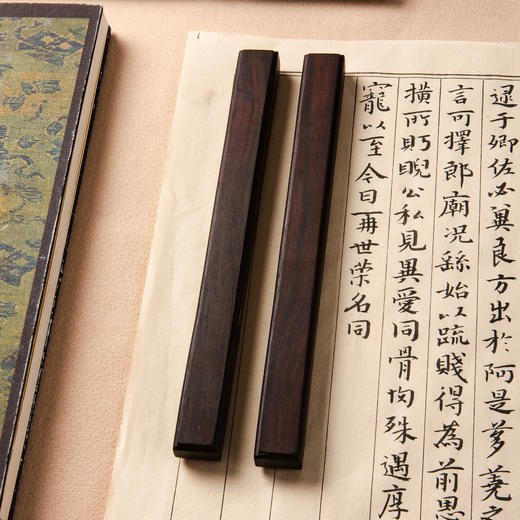 逮于卿佐必冀良方出於阿是芻蕘之
言可擇郎廟況繇始以疏賤得為前恩
橫所眄睨公私見異愛同骨肉殊遇厚
寵以至今日再世榮名同